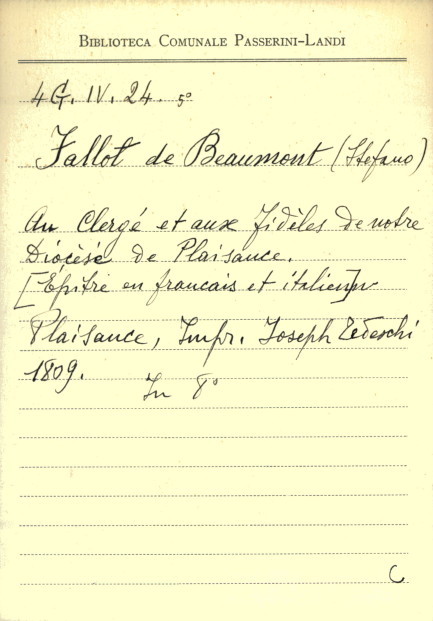 BIBLIOTECA COMUNALE PASSERINI-LANDI
4G. IV. 24. 5°
Fallot de Beaumont (Stefano)
Au Clergé et aux fidèles de notre
Diocèse de Plaisance.
[Épitre en francais et italien]
Plaisance, Impr. Joseph Tedeschi
1809. In 8°
C